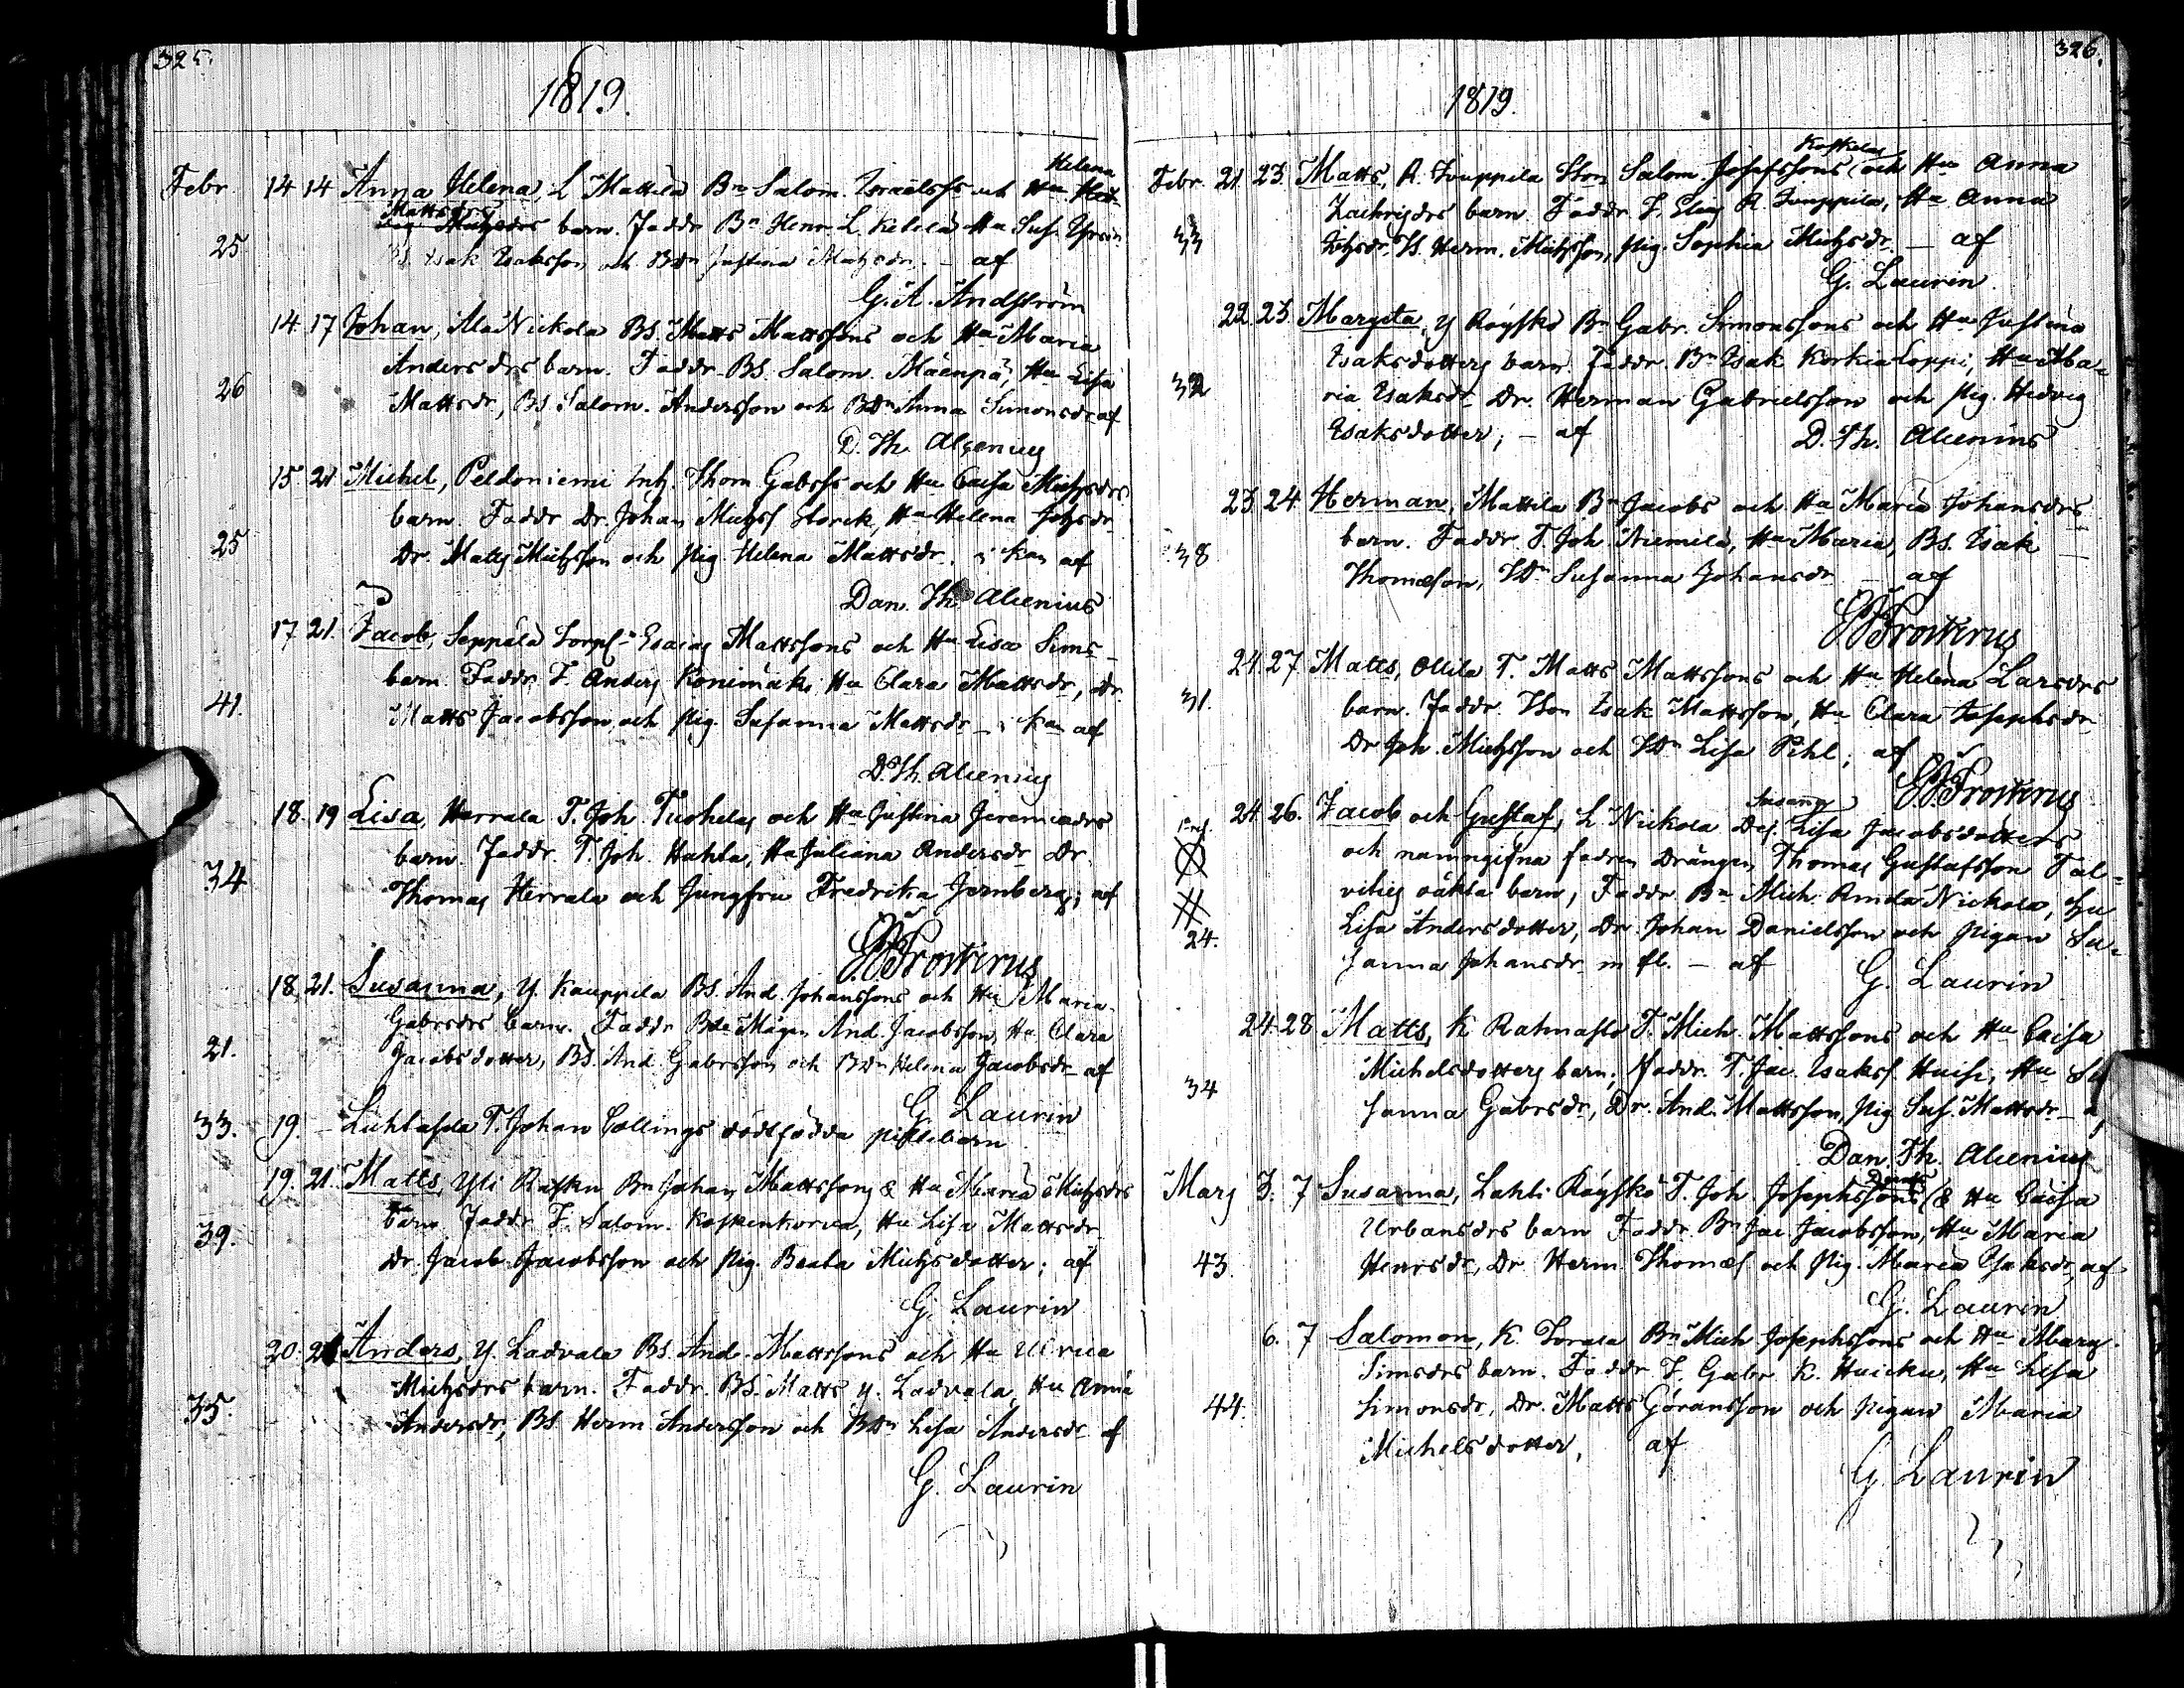 325.
1819.
Helena
Febr. 14 14 Anna Helena, L Mattila Bn Salom. Israëlsss och Hu
Mattsdrs
barn. Faddr Bn Henr. L. Kelela Hu Sus.
25
Isak Isaksson och BDn Justina Michsdr. – af
G. A. Andström
14. 17 Johan, Ala Nickola BS. Matts Mattssons och Hu Maria
Andersdrs barn. Faddr. BS. Salom. Mäenpä, Hu Lisa
26
Mattsdr, BS. Salom. Andersson och BDn Anna Simonsdr af
D. Th. Alcenius
15. 21 Michel, Peldoniemi Inh. Thom Gabrss och Hu Caisa Michsdrs
barn. Faddr Dr. Johan Michss Storck, Hu Helena Johsdr
25
Dr. Matts Michsson och Pig. Helena Mattsdr. i kan af
Dan. Th. Alcenius
17. 21. Jacob, Seppälä Torp. Esaias Mattssons och Hu Lisa Sims
barn. Faddr. T. Anders Konimäki Hu Clara Mattsdr, Dr.
41.
Matts Jacobsson och Pig. Susanna Mattsdr – i kan af
D. Th. Alcenius
18. 19 Lisa, Herrala T. Joh. Tuohelas och Hu Justina Jeremiædrs
barn. Faddr. T. Joh. Hahla, Hu Juliana Andersdr Dr.
34
Thomas Herrala och Jungfru Fredrika Jernberg; af
Frosterus
18. 21. Susanna, Y. Kauppila BS. And. Johanssons och Hu Maria
Gabrsdrs barn. Faddr Bde Mågen And. Jacobsson, Hu Clara
21.
Jacobsdotter, BS. And. Gabrsson och BDn Helena Jacobsdr af
G. Laurin
33. 19. – Luhtasela T. Johan Collings dödfödda pikebarn
19. 21. Matts, Yli Rasku Bn Johan Mattssons & Hu Maria Michsdrs
barn. Faddr. T. Salom. Koskenkorva, Hu Lisa Mattsdr
39.
Dr. Jacob Jacobsson och Pig. Beata Michsdotter; af
G. Laurin
20. 21 Anders, Y. Ladvala BS. And. Mattssons och Hu Ulrica
Michsdrs barn. Faddr. BS. Matts Y. Ladvala, Hu Anna
35.
Andersdr, BS. Herm Andersson och BDn Lisa Andersdr af
G. Laurin
326.
1819.
Koskelas
Febr. 21. 23. Matts, R. Juuppila Ston Salom. Josefssons och Hu Anna
Zachrisdrs barn. Faddr. T. Elias R. Juuppila, Hu Anna
33
Herm. Michsson, Pig. Sophia Michsdr. – af
G. Laurin.
22. 23. Margeta, Y Röyskö Bn Gabr. Simonssons och Hu Justina
Isaksdotters barn. Faddr. Bn Isak Korkia Loppi, Hu Ma=
32
ria Isaksdr. Dr. Herman Gabrielsson och Pig. Hedvig
Isaksdotter; – af D. Th. Alcenius
23. 24. Herman, Mattila Bn Jacobs och Hu Maria Johansdrs
barn. Faddr. T. Joh. Niemilä, Hu Maria, BS. Isak
38
Thomæson, Susanna Johansdr – af
Frosterus
24. 27. Matts, Ollila T. Matts Mattssons och Hu Helena Larsdrs
31.
barn. Faddr. Isak Mattsson, Hu Clara Josephsdr
Dr Joh. Michsson och Lisa Pihl; af
Frosterus
Susanna
24. 26. Jacob och Gustaf, L Nickola Dej. Lisa Jacobsdotters
och namngifna fadren Drängen Thomas Gustafsson Tal=
vities oäkta barn, Faddr Bn Mich. Annala Nickola, Hu
24.
Lisa Andersdotter, Dr. Johan Danielsson och Pigan Su=
sanna Johansdr m fl. – af G. Laurin
24. 28 Matts, K Rahnasto T. Mich. Mattssons och Hu Caisa
Michelsdotters barn; Faddr. T. Jac. Isakss. Huisi, Hu Su
34
sanna Gabrsdr, Dr. And. Mattsson, Pig Sus. Mattsdr –
Dan. Th. Alcenius
Mars 3. 7 Susanna, Lahti Röyskö T. Joh. Josephssons & Hu Caisa
Urbansdrs barn Faddr. Bn Jac Jacobsson, Hu Maria
43.
Henrsdr, Dr. Herm. Thomæs och Pig. Maria Isaksdr, af
G. Laurin
6. 7 Salomon, K. Torala Bn Mich Josephssons och Hu Marg.
Simsdrs barn. Faddr T. Gabr. K. Huicku, Hu Lisa
44.
Simonsdr, Dr. Matts Göransson och Pigan Maria
Michelsdotter, af
G. Laurin